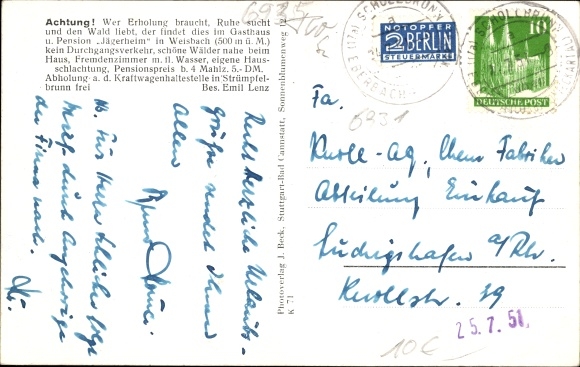 Achtung! Wer Erholung braucht, Ruhe sucht
und den Wald liebt, der findet dies im Gasthaus
u. Pension „Jägerheim" in Weisbach (500 m ü. M.)
kein Durchgangsverkehr, schöne Wälder nahe beim
Haus, Fremdenzimmer m. fl. Wasser, eigene Haus-
schlachtung, Pensionspreis b. 4 Mahlz. 5.- DM.
Abholung a. d. Kraftwagenhaltestelle in Strümpfel-
brunn frei Bes. Emil Lenz
Recht herzliche Urlaubs-
grüße sendet Ihnen
Allen
Photoverlag J. Beck, Stuttgart-Bad Cannstatt, Sonnenblumenweg 12
K 71
6935
NOTOPFER
2 BERLIN
STEUERMARKE
10
DEUTSCHE POST
6931
Fa.
Knoll-AG, Chem Fabriken
Abteilung Einkauf
Ludwigshafen a/Rh.
Knollstr. 39
25. 7. 51.
10€